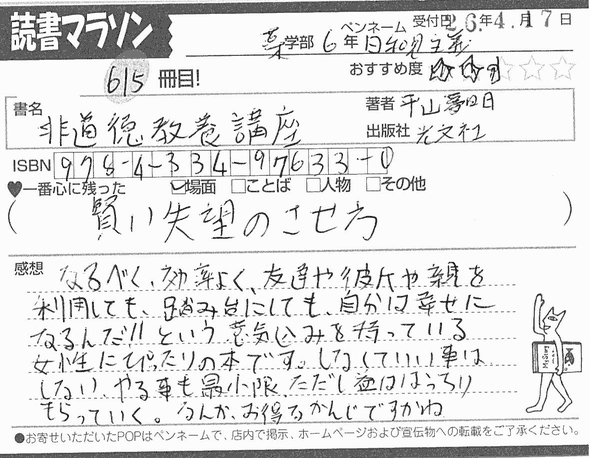 読書マラソン
ペンネーム 受付日 26年4月17日
薬学部 6年 日和見主義
615冊目!
おすすめ度 ☆☆☆☆☆
書名 非道徳教養講座
著者 平山夢明
出版社 光文社
ISBN 978-4-334-97633-0
♥一番心に残った ☑場面 □ことば □人物 □その他
(賢い失望のさせ方)
感想 なるべく、効率よく、友達や彼氏や親を
利用しても、踏み台にしても、自分は幸せに
なるんだ!!という意気込みを持っている
女性にぴったりの本です。しなくていい事は
しない、やる事も最小限、ただし益はばっちり
もらっていく。なんか、お得なかんじですかね
●お寄せいただいたPOPはペンネームで、店内で掲示、ホームページおよび宣伝物への転載をご了承ください。